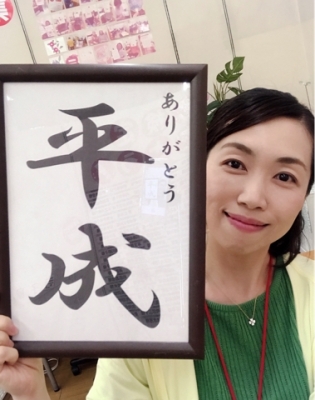 ありがとう
平成